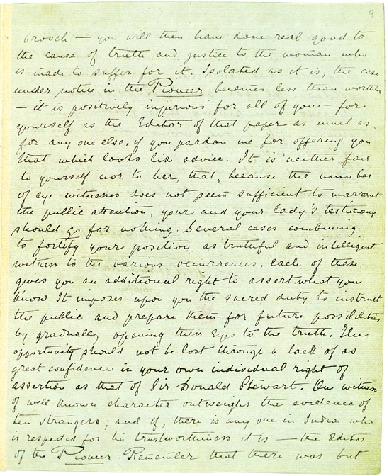 brooch — you will then have done real good to
the cause of truth and justice to the woman who
is made to suffer for it. Isolated as it is, the case
under notice in the Pioneer becomes less than worthless
— it is positively injurious for all of you — for
yourself as the Editor of that paper as much as
for anyone else, if you pardon me for offering you
that which looks like advice. It is neither fair
to yourself nor to her, that, because the number
of eye witnesses does not seem sufficient to warrant
the public attention, your and your lady's testimony
should go for nothing. Several cases combining
to fortify your position as truthful and intelligent
witness to the various occurrences, each of these
gives you an additional right to assert what you
know. It imposes upon you the sacred duty to instruct
the public and prepare them for future possibilities
by gradually opening their eyes to the truth. The
opportunity should not be lost through a lack of as
great confidence in your own individual right of
assertion as that of Sir Donald Stewart. One witness
of well known character outweighs the evidence of
ten strangers; and if, there is any one in India who
is respected for his trustworthiness it is — the Editor
of the Pioneer. Remember that there was but